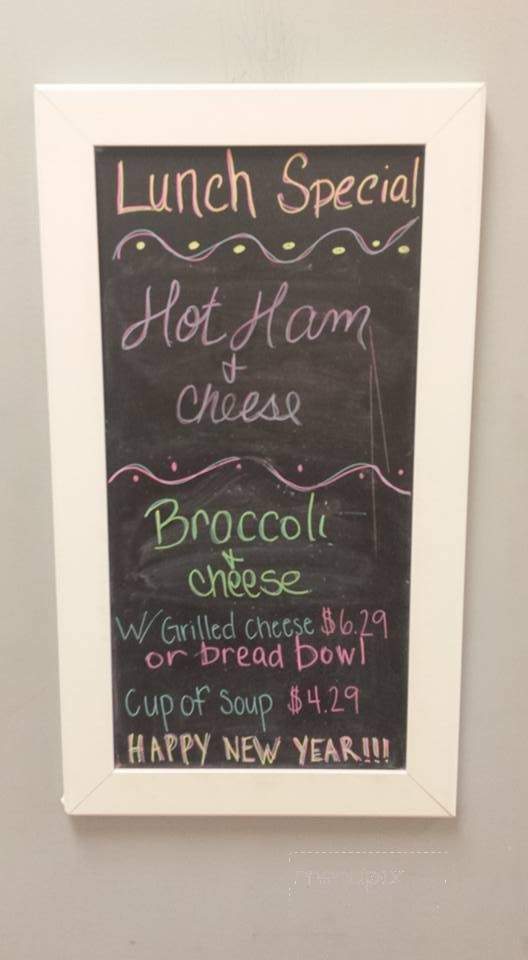 Lunch Special
Hot Ham
&
cheese
Broccoli
&
cheese
W/ Grilled cheese $6.29
or bread bowl
Cup of soup $4.29
HAPPY NEW YEAR!!!
menupix